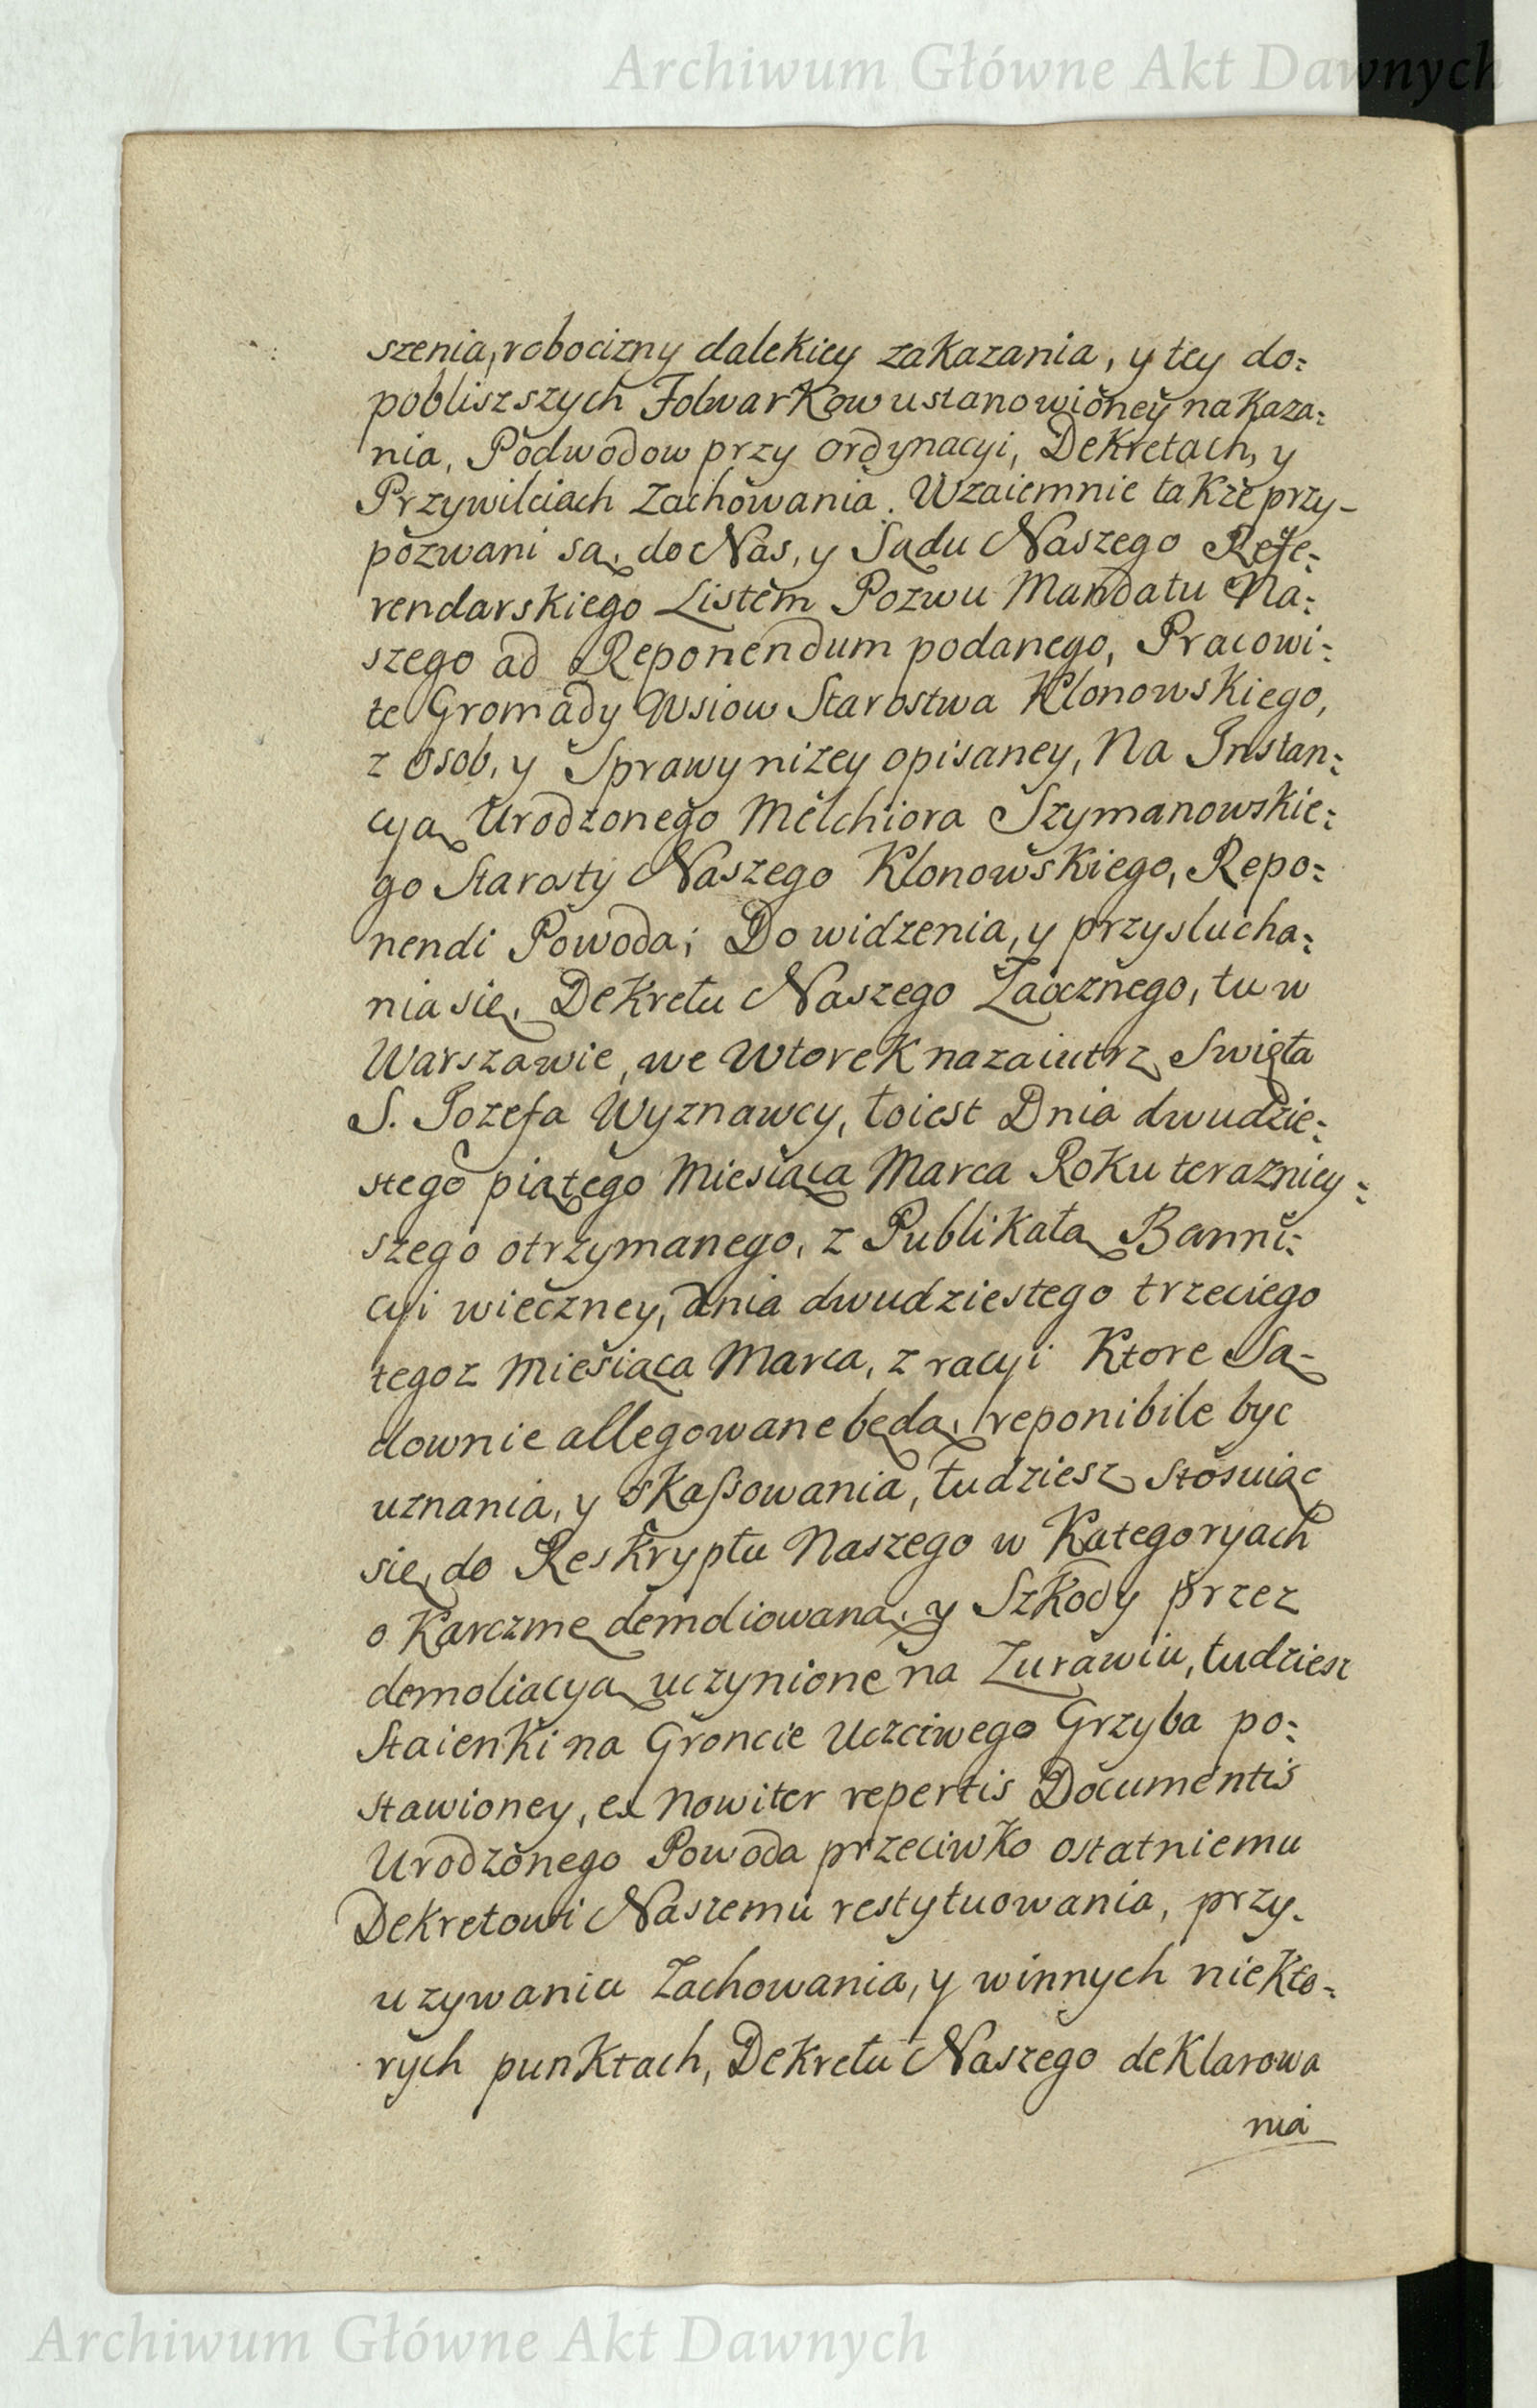 Archiwum Główne Akt Dawnych
szenia, robocizny dalekiey zakazania, y tey do=
pobliszszych Folwarkow ustanowioney nakaza=
nia, Podwodow przy ordynacyi, Dekretach, y
Przywileiach Zachowania. Wzaiemnie takze przy-
pozwani są, do Nas, y Sądu Naszego Refe=
rendarskiego Listem Pozwu Mandatu Na=
szego ad Reponendum podanego, Pracowi=
te Gromady Wsiow Starostwa Klonowskiego,
z osob, y Sprawy nizey opisaney, Na Instan=
cyą Urodzonego Melchiora Szymanowskie=
go Starosty Naszego Klonowskiego, Repo=
nendi Powoda; Do widzenia, y przyslucha=
nia się, Dekretu Naszego Zaocznego, tu w
Warszawie, we Wtorek nazaiutrz Swięta
S. Jozefa Wyznawcy, toiest Dnia dwudzie=
stego piątego Miesiąca Marca Roku terazniey=
szego otrzymanego, z Publikatą Banni=
cyi wieczney, dnia dwudziestego trzeciego
tegoz Miesiąca Marca, z racyi Ktore Są-
downie allegowane będą, reponibile byc
uznania, y skassowania, tudziesz stosuiąc
się do Reskryptu Naszego w Kategoryach
o Karczmę demoliowaną, y Szkody przez
demoliacyą uczynione na Zurawiu, tudziesz
Staienki na Groncie Uczciwego Grzyba po=
stawioney, ex Nowiter repertis Documentis
Urodzonego Powoda przeciwko ostatniemu
Dekretowi Naszemu restytuowania, przy-
uzywaniu Zachowania, y winnych niekto=
rych punktach, Dekretu Naszego deklarowa
nia
Archiwum Główne Akt Dawnych